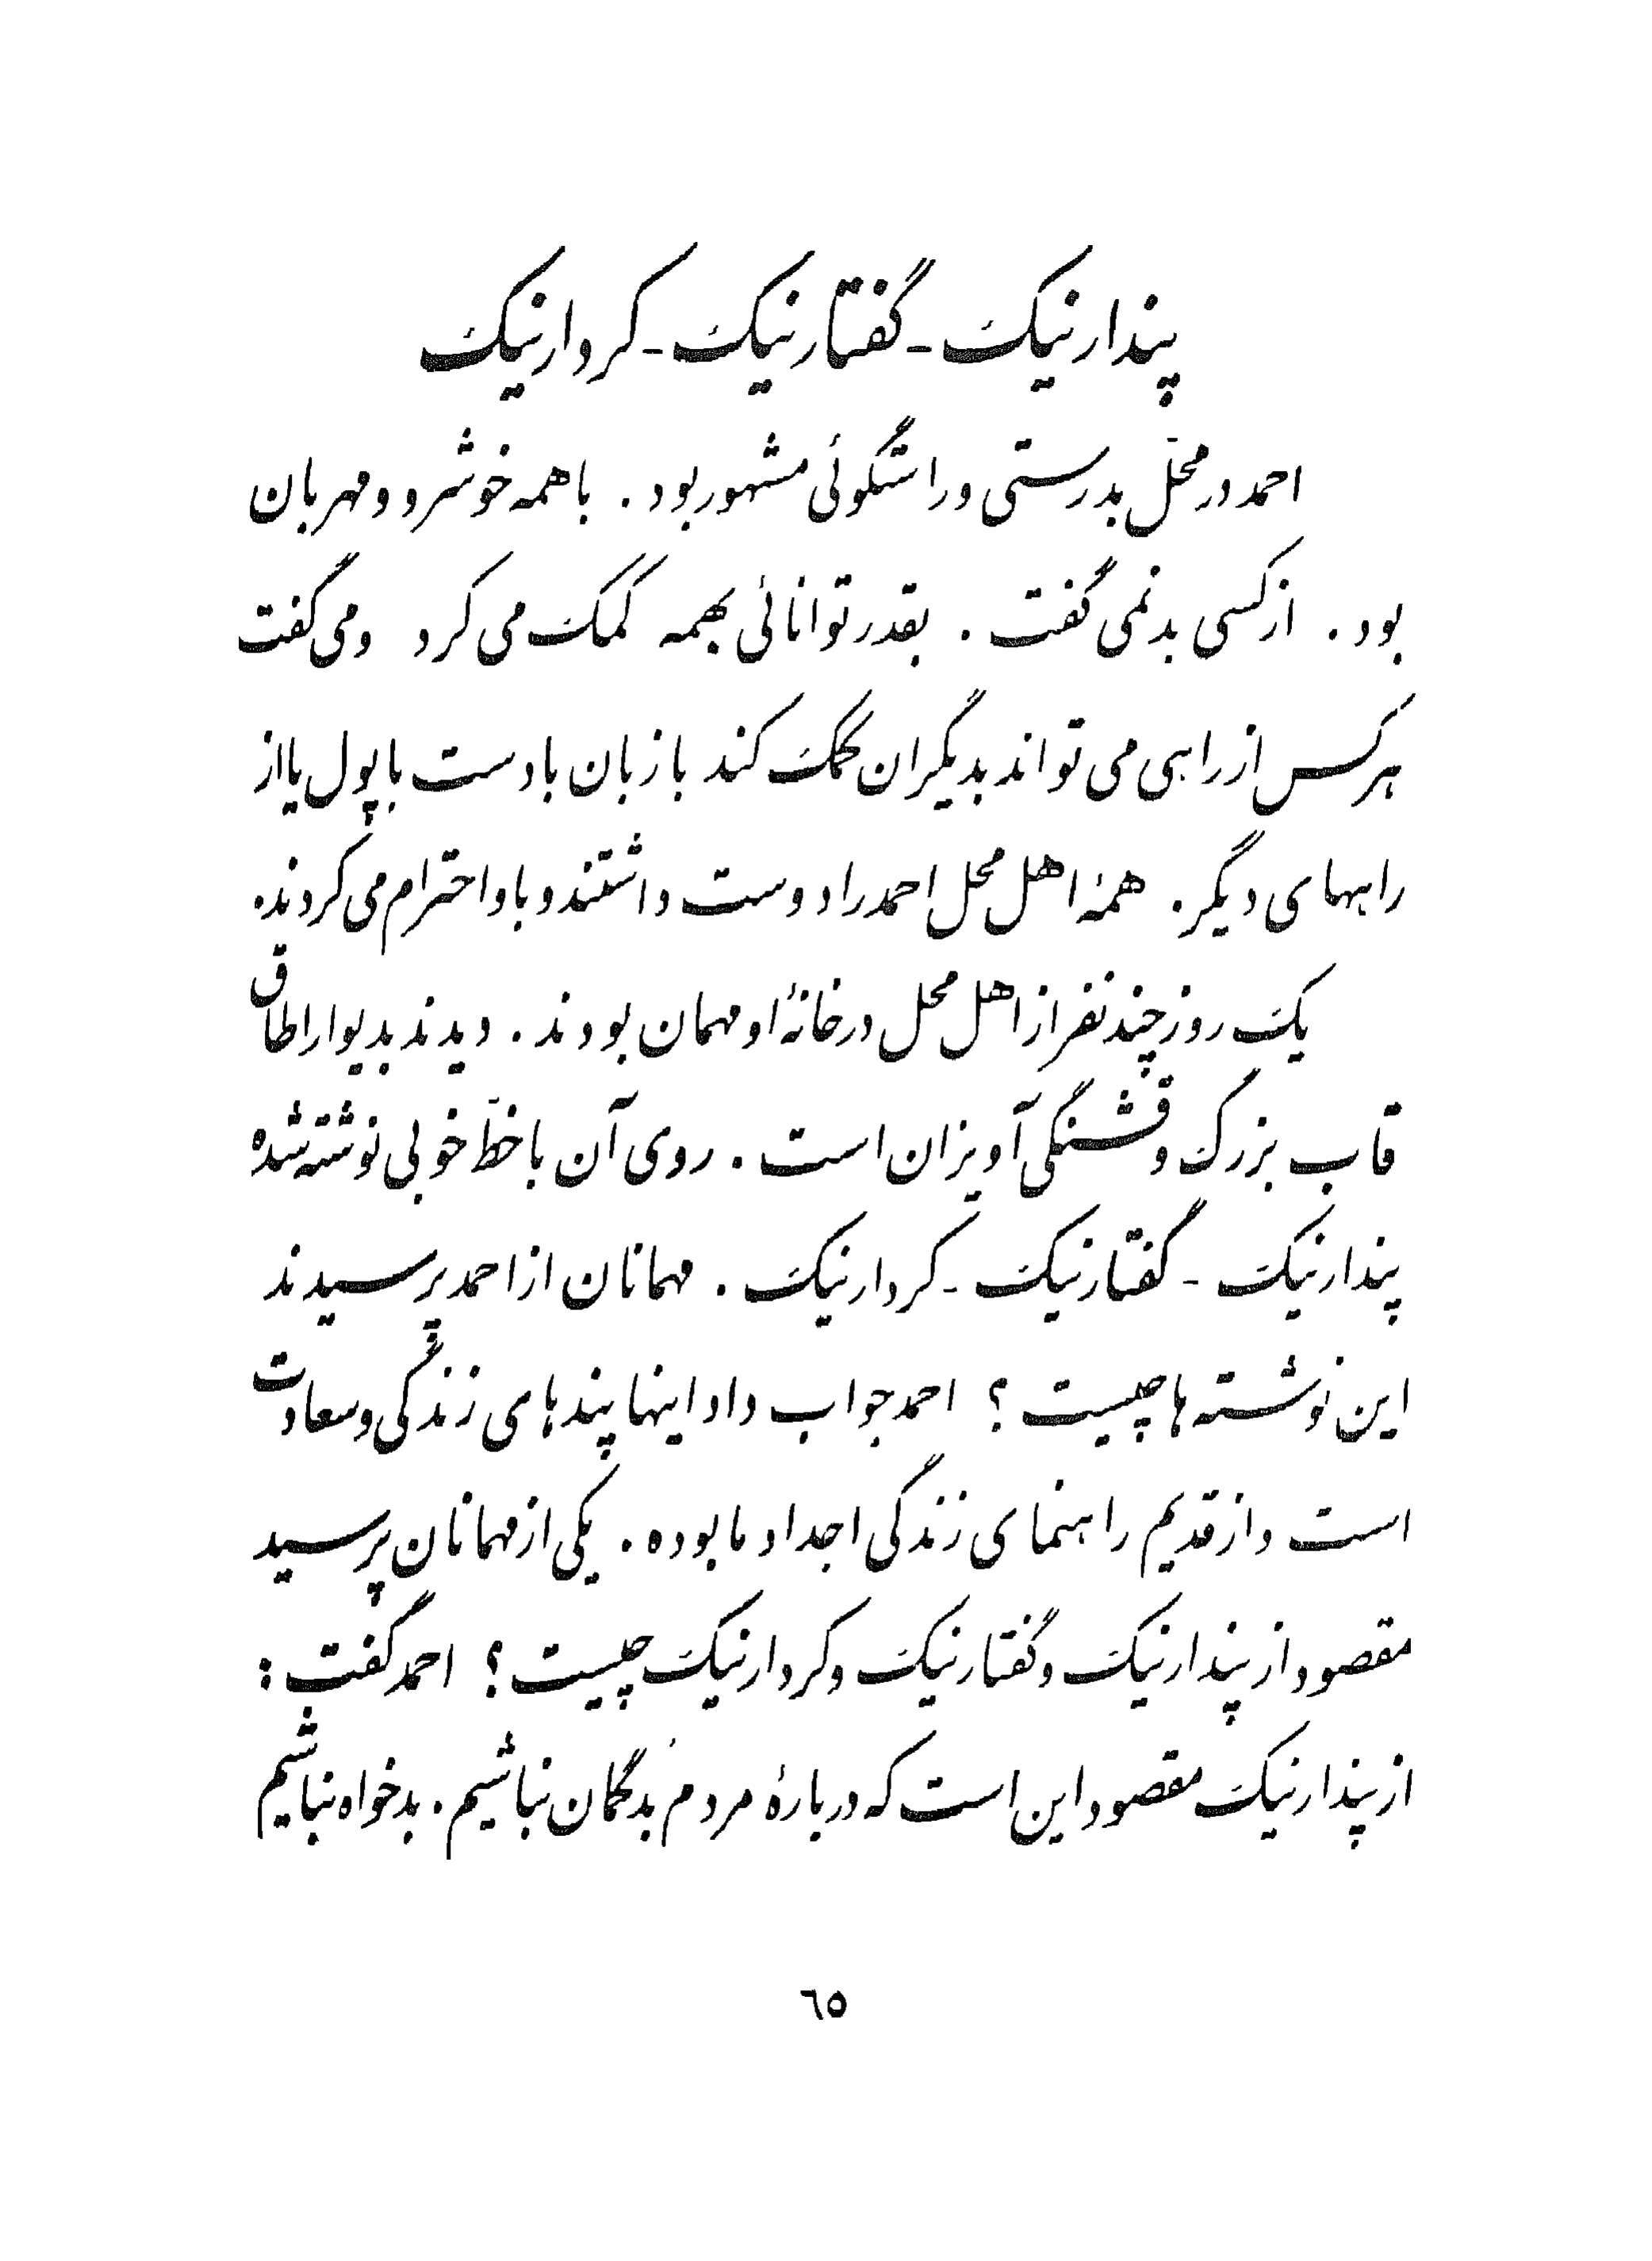 پندار نیک - گفتار نیک - کردار نیک
احمد در محلّ بدرستی و راستگوئی مشهور بود . با همه خوشرو و مهربان
بود . از کسی بد نمی گفت . بقدر توانائی بهمه کمک می کرد و می گفت
هر کس از راهی می تواند بدیگران کمک کند با زبان با دست با پول یا از
راههای دیگر . همهٔ اهل محل احمد را دوست داشتند و باو احترام می کردند.
یک روز چند نفر از اهل محل در خانهٔ او مهمان بودند . دیدند بدیوار اطاق
قاب بزرگ و قشنگی آویزان است . روی آن با خطّ خوبی نوشته شده
پندار نیک - گفتار نیک - کردار نیک . مهمانان از احمد پرسیدند
این نوشته ها چیست ؟ احمد جواب داد اینها پندهای زندگی و سعادت
است و از قدیم راهنمای زندگی اجداد ما بوده . یکی از مهمانان پرسید
مقصود از پندار نیک و گفتار نیک و کردار نیک چیست ؟ احمد گفت :
از پندار نیک مقصود این است که دربارهٔ مردم بَدگمان نباشیم . بدخواه نباشیم
٦٥